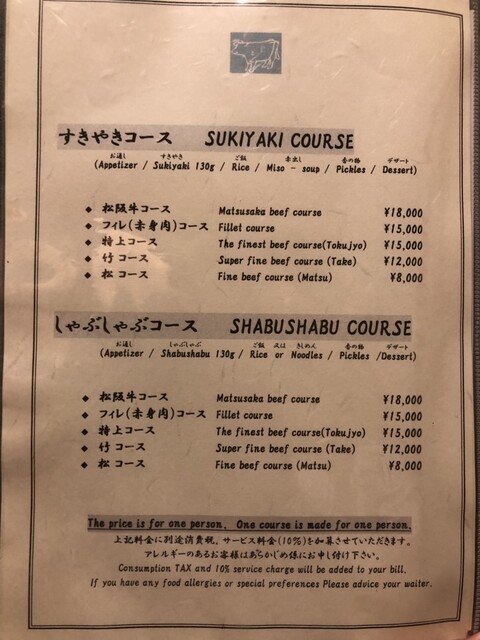 すきやきコース SUKIYAKI COURSE
お通し すきやき ご飯 赤出し 香の物 デザート
(Appetizer / Sukiyaki 130g / Rice / Miso - soup / Pickles / Dessert)
◆ 松阪牛コース Matsusaka beef course ¥18,000
◆ フィレ(赤身肉)コース Fillet course ¥15,000
◆ 特上コース The finest beef course(Tokujyo) ¥15,000
◆ 竹コース Super fine beef course (Take) ¥12,000
◆ 松コース Fine beef course (Matsu) ¥8,000
しゃぶしゃぶコース SHABUSHABU COURSE
お通し しゃぶしゃぶ ご飯 又は きしめん 香の物 デザート
(Appetizer / Shabushabu 130g / Rice or Noodles / Pickles /Dessert)
◆ 松阪牛コース Matsusaka beef course ¥18,000
◆ フィレ(赤身肉)コース Fillet course ¥15,000
◆ 特上コース The finest beef course(Tokujyo) ¥15,000
◆ 竹コース Super fine beef course (Take) ¥12,000
◆ 松コース Fine beef course (Matsu) ¥8,000
The price is for one person. One course is made for one person.
上記料金に別途消費税、サービス料金(10%)を加算させていただきます。
アレルギーのあるお客様はあらかじめ係にお申し付け下さい。
Consumption TAX and 10% service charge will be added to your bill.
If you have any food allergies or special preferences Please advice your waiter.